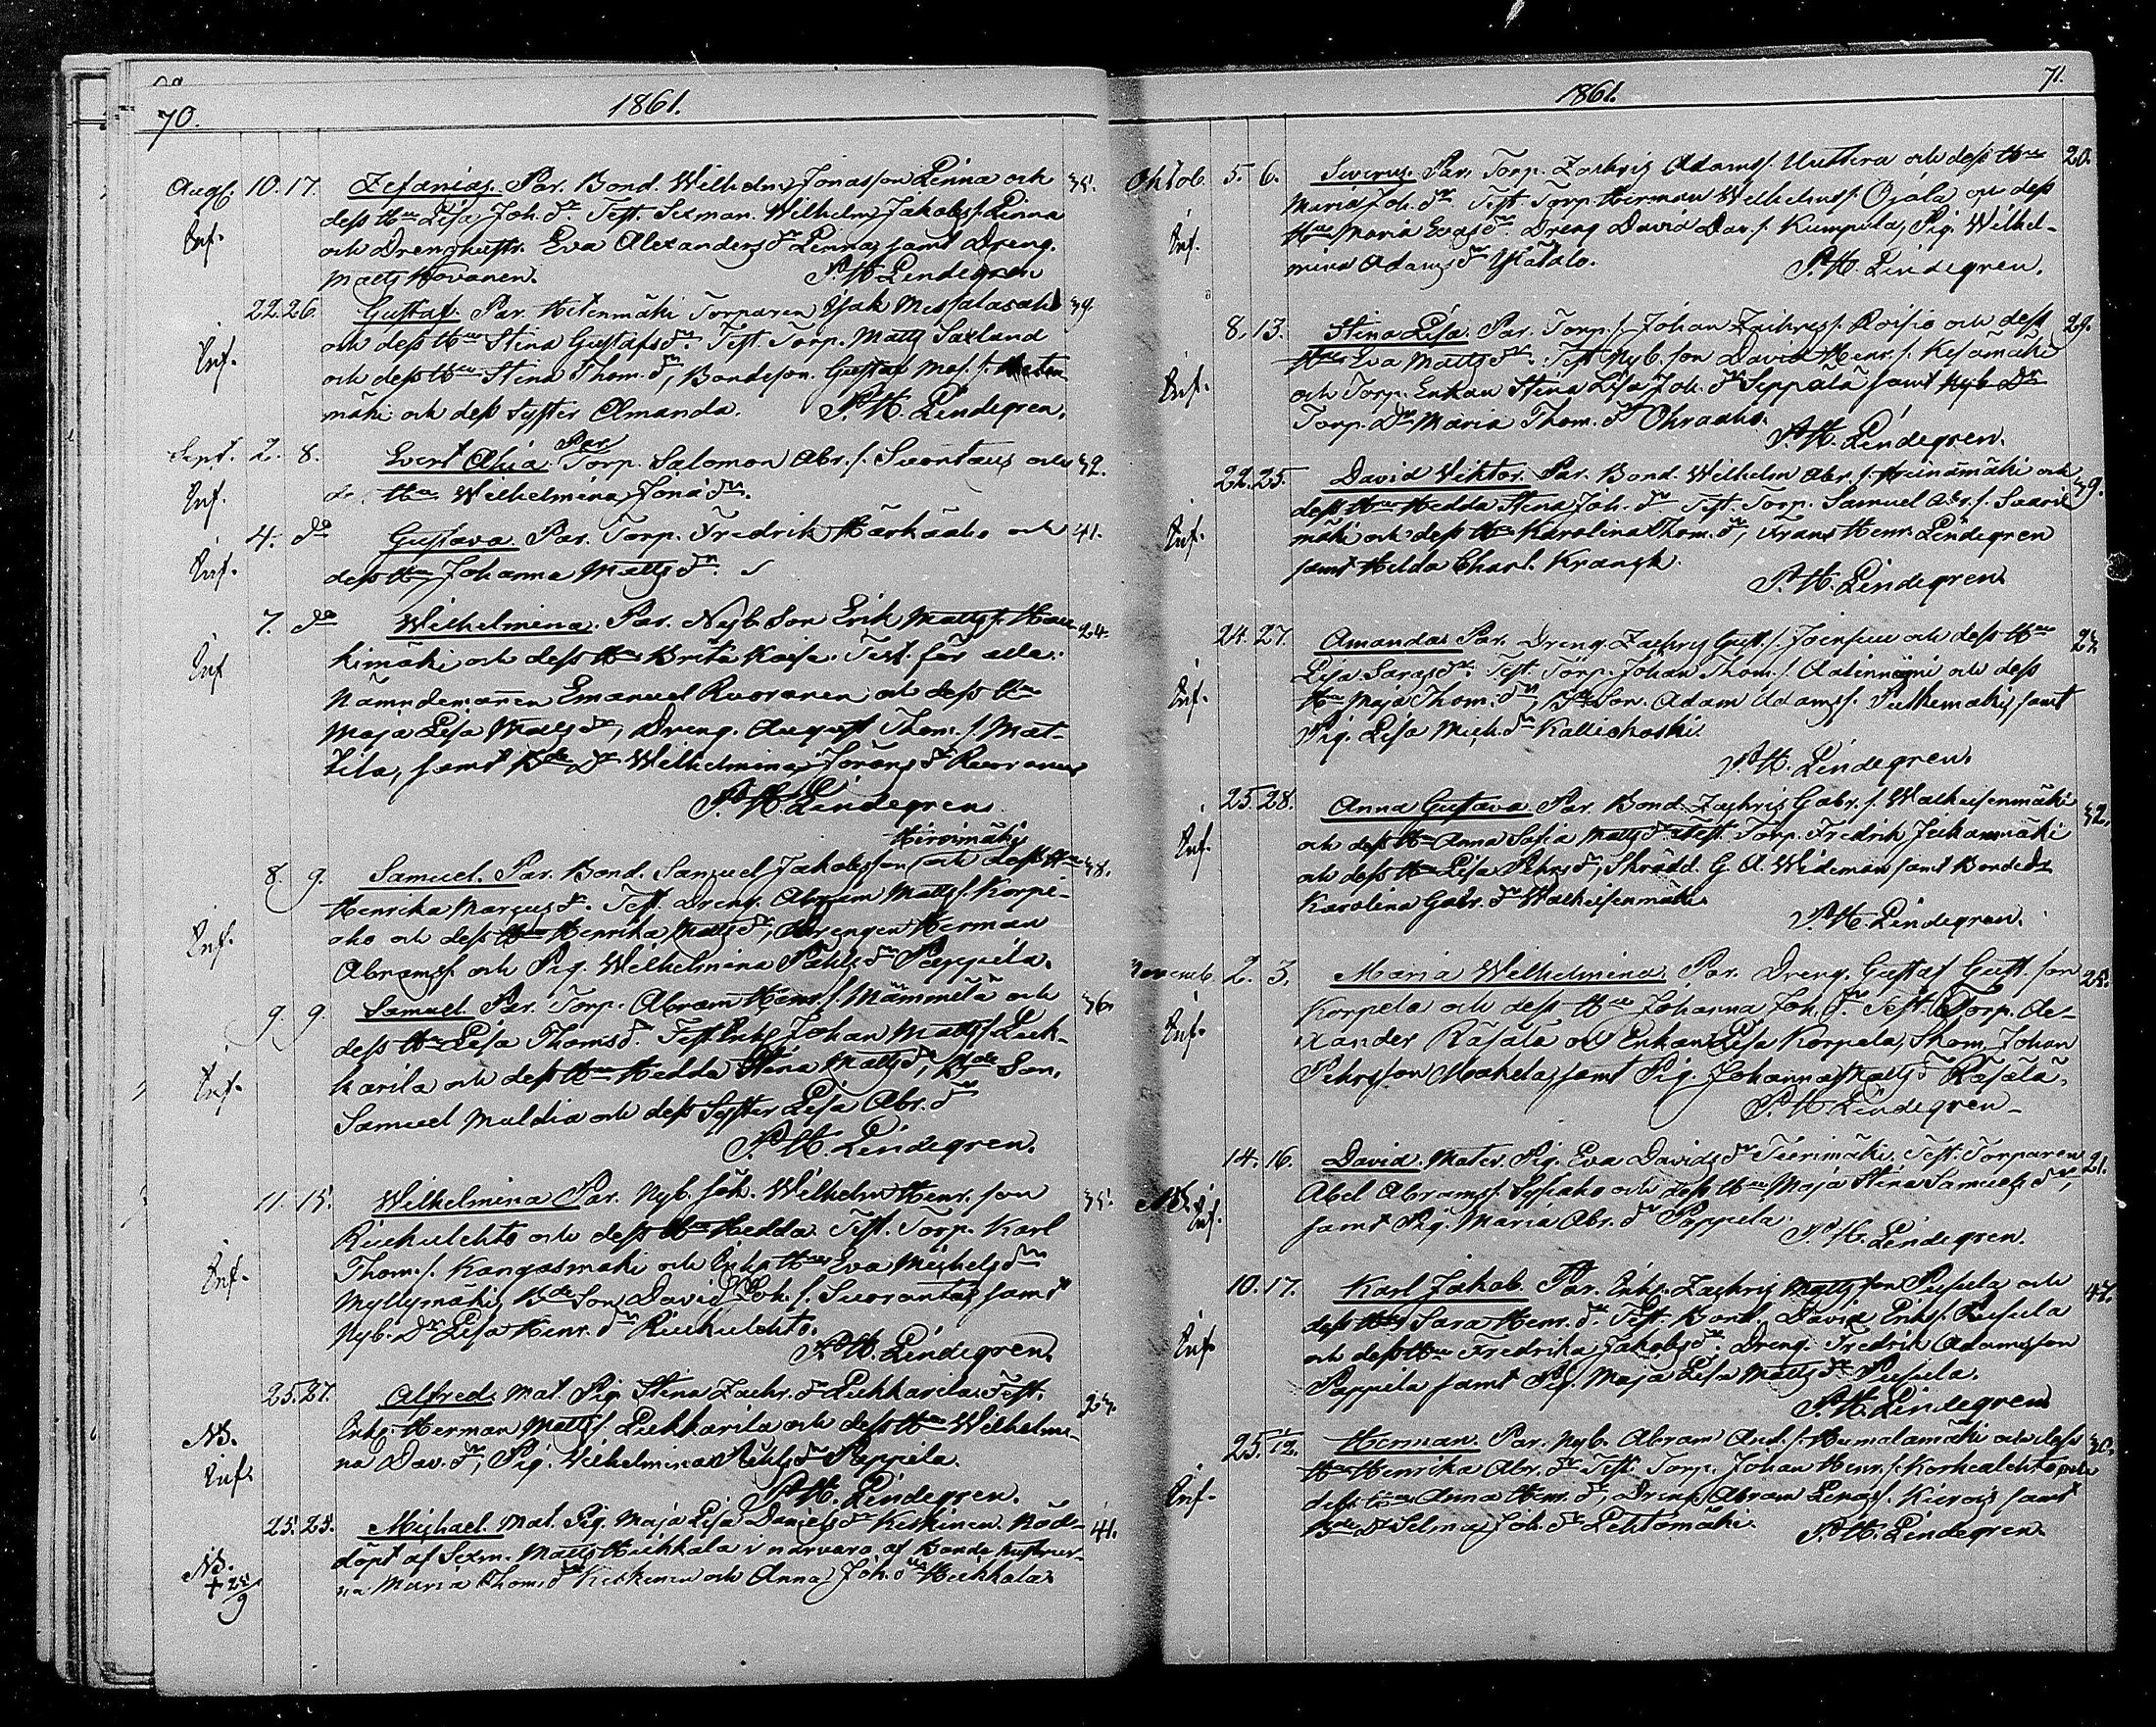 70. 1861.
Aug. 10. 17. Zefanias. Par. Bond. Wilhelm Jonasson Linna och 35.
dess Hu Lisa Joh. dr. Test. Sexman. Wilhelm Jakobs s. Linna
Inf. och Dreng hustr. Eva Alexanders dr Linna, samt Dreng.
Matts Hovanen. P. H. Lindegren
22. 26. Gustaf. Par. Torparen Isak 39.
och dess Hu Stina Gustafs dr. Test. Torp. Matts Saxlund
Inf. och dess Hu Stina Thom. dr, Bondeson. Gustaf
mäki och dess Syster Amanda. P. H. Lindegren.
Sept. 2. 8. Evert Par. Torp. Salomon Abr. s. och 32.
Inf. d. Hu Wilhelmina Jona dr.
4. do Gustava. Par. Torp. Fredrik Härkäaho och 41.
Inf. dess Hu Johanna Matts dr.
7. do Wilhelmina. Par. Nyb. Son Erik Matts s. Hau- 24.
Inf kimäki och dess Hu Brita Kaisa. Test. för alla:
Nämndemannen Emanuel Ruoranen och dess Hu
Maja Lisa Matts dr, Dreng. August Thom. s. Mat-
tila, samt Bde Dr Wilhelmina Jörans dr Ruoranen
P. H. Lindegren
Hirvimäki
8. 9. Samuel. Par. Bond. Samuel Jakobsson och dess Hu 38.
Henrika Margus d. Test. Dreng. Abram Matts s. Korpi-
Inf. aho och dess Hu Henrika Matts dr, Drengen Herman
Abrams s. och Pig. Wilhelmina Påhls dr Pappila.
9. 9. Samuel. Par. Torp. Abram Henr. s. Mämmelä och 36.
dess Hu Lisa Thoms d. Test. Johan Matts s. Liek-
Inf. karila och dess Hu Hedda Stina Matts dr, Bde Son.
Samuel Muldia och dess Syster Lisa Abr. dr
P. H. Lindegren.
11. 15. Wilhelmina Par. Nyb. Wilhelm Henr. son 35.
Riekulehto och dess Hu Hedda. Test. Torp. Karl
Inf. Thom. s. Kangasmäki och Hu Eva Michels dr
Myllymäki, Bde Son David Joh. s. Suoranta, samt
Nyb. Dr Lisa Henr. dr Riekulehto.
P. H. Lindegren.
25. 27. Alfred. Mat. Pig. Stina Zachr. dr Liekkarila. Test.
NB. Herman Matts s. Liekkarila och dess Hu Wilhelmi-
Inf. na Dav. dr, Pig. Wilhelmina Påhls dr Pappila.
P. H. Lindegren.
25. 25. Michael. Mat. Pig. Maja Lisa Daniels dr Keskinen. Nöd- 41.
NB. döpt af Sexm. Matts Hiekkala i närvaro af Bonde hustrur-
+ 25/9 na Maria Thom. dr Keskinen och Anna Joh. dr Hiekkala.
1861. 71.
Oktob. 5. 6. Severus. Par. Torp. Zachris Adams s. Uuttera och dess Hu 20.
Maria Joh. dr. Test. Torp. Herman Wilhelms s. Ojala och dess
Inf. Hu Maria Evas dr. Dreng David Dav. s. Kumpula, Pig. Wilhel-
mina Adams dr Ylätalo. P. H. Lindegren.
8. 13. Stina Lisa. Par. Torp. s. Johan Zachris s. Roisio och dess 29.
Hu Eva Matts dr. Test. Nyb. son David Henr. s. Kesämäki
Inf. och Torp. Enkan Stina Lisa Joh. dr Seppälä samt
Torp. Dr Maria Thom. dr Ohraaho.
P. H. Lindegren.
22. 25. David Viktor. Par. Bond. Wilhelm Abr. s. Heinämäki och 39.
dess Hu Hedda Stina Joh. dr Test. Torp. Samuel Abr. s. Saari-
Inf. mäki och dess Hu Karolina Thom. dr, Frans Henr. Lindegren
samt Hilda Charl. Krangh.
P. H. Lindegren.
24. 27. Amanda. Par. Dreng. Zachris Gust. s. Joensuu och dess Hu
Lisa Saras dr. Test. Torp. Johan Thom. s. och dess
Inf. Hu Maja Thom. dr, Son. Adam Adams s. samt
Pig. Lisa Mich. dr Kalliokoski.
P. H. Lindegren.
25. 28. Anna Gustava Par. Bond. Zachris Gabr. s. 32.
Inf. och dess Hu Anna Sofia Matts dr Test. Torp. Fredrik
och dess Hu Lisa Pehrs dr, Skrädd. G. A. Wideman samt Bonde Dr
Karolina Gabr. dr
P. H. Lindegren.
Novemb. 2. 3. Maria Wilhelmina. Par. Dreng. Gustaf Gust. son 25.
Inf. Korpela och dess Hu Johanna Joh. dr. Test. Torp. Ale-
xander Räsälä och Enkan Lisa Korpela, Skom. Johan
Pehrsson Makela, samt Pig. Johanna Matts dr Räsälä.
P. H. Lindegren
14. 16. David. Mater. Pig. Eva Davids dr Tierimäki. Test. Torparen 21.
NB. Inf. Abel Abrams s. Sysiaho och dess Hu Maja Stina Samuels dr,
samt Pig. Maria Abr. dr Pappila. P. H. Lindegren.
10. 17. Karl Jakob. Par. Zachris Mattsson Pusula och
dess Hu Sara Henr. dr. Test. Bond. David Eriks s. Pusula
Inf. och dess Hu Fredrika Jakobs dr. Dreng. Fredrik Adamsson
Pappila samt Pig. Maja Lisa Matts dr Pusula.
P. H. Lindegren
25. 1/12. Herman. Par. Nyb. Abram And. s. Humalamäki och dess 30.
Hu Henrika Abr. dr Test. Torp. Johan Henr. s. Korhealehto och
Inf. dess Hu Anna Henr. dr, Dreng. Abram samt
Bde Dr Selma Joh. dr Lehtomäki. P. H. Lindegren.